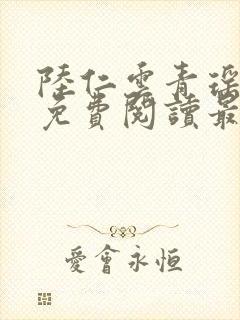 陸仁雲青瑶
免費閱讀最
愛會永恒